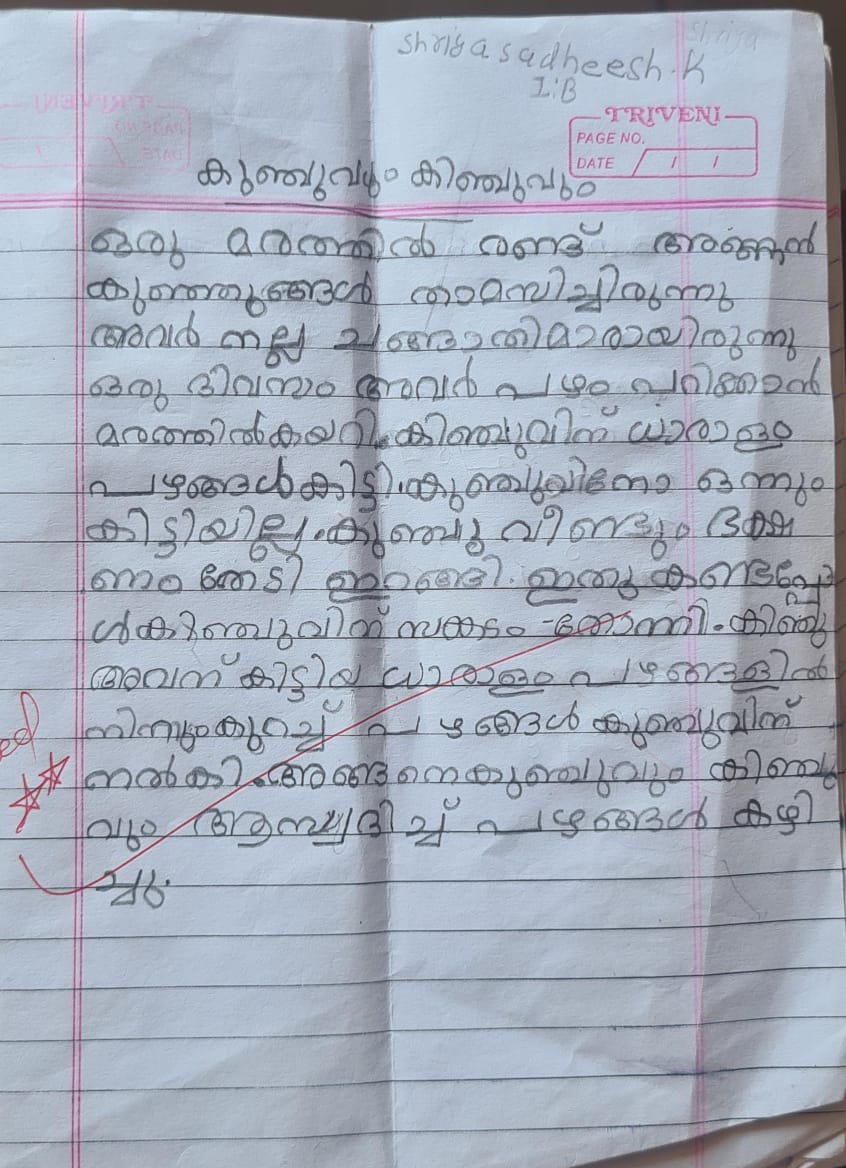 Shriya sadheesh.K
I:B
TRIVENI
PAGE NO.
DATE / /
കുഞ്ചുവും കിഞ്ചുവും
ഒരു മരത്തിൽ രണ്ട് അണ്ണൻ
കുഞ്ഞുങ്ങൾ താമസിച്ചിരുന്നു
അവർ നല്ല ചങ്ങാതിമാരായിരുന്നു
ഒരു ദിവസം അവർ പഴം പറിക്കാൻ
മരത്തിൽകയറി.കിഞ്ചുവിന് ധാരാളം
പഴങ്ങൾകിട്ടി.കുഞ്ചുവിനോ ഒന്നും
കിട്ടിയില്ല.കുഞ്ചു വീണ്ടും ഭക്ഷ
ണം തേടി ഇറങ്ങി. ഇതു കണ്ടപ്പോ
ൾകിഞ്ചുവിന് സങ്കടം തോന്നി.കിഞ്ചു
അവന് കിട്ടിയ ധാരാളം പഴങ്ങളിൽ
നിന്നുംകുറച്ച് പഴങ്ങൾ കുഞ്ചുവിന്
നൽകി.അങ്ങനെകുഞ്ചുവും കിഞ്ചു
വും ആസ്വദിച്ച് പഴങ്ങൾ കഴി
ച്ചു.